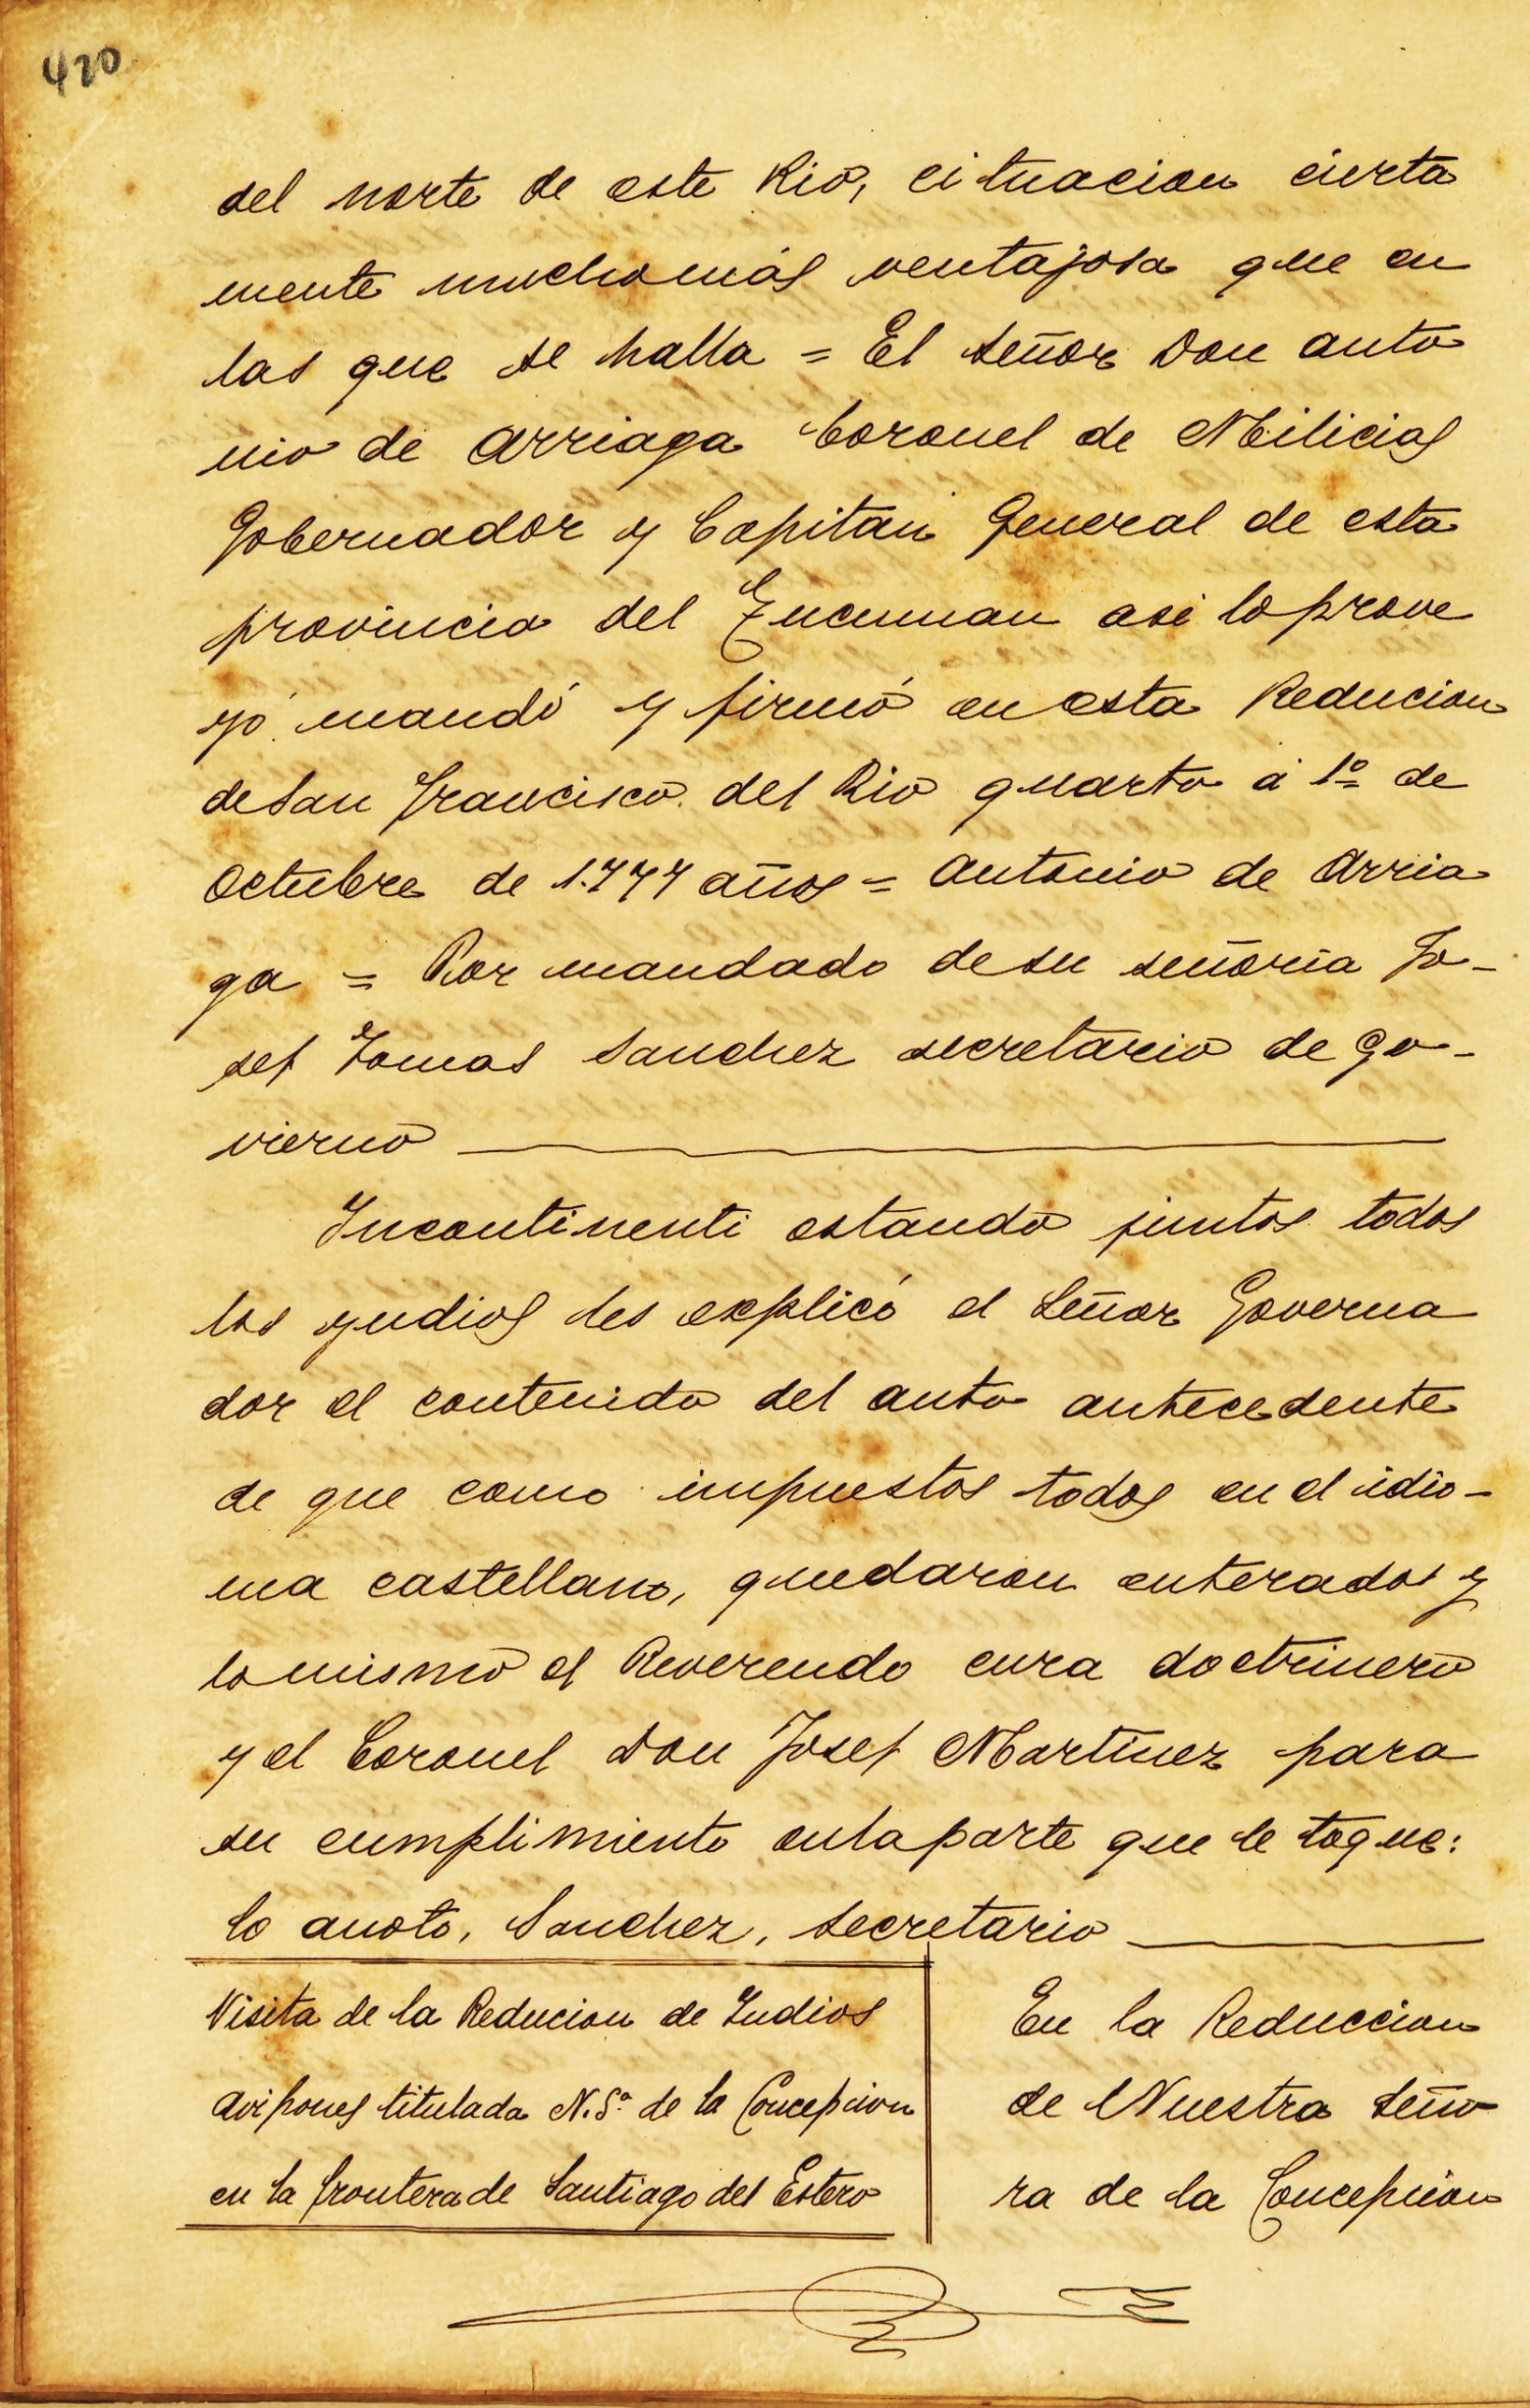 420
del norte de este Rio, cituacion cierta
mente muchomás ventajosa que en
las que se halla = El Señor Don Anto
nio de Arriaga Coronel de Milicias
Gobernador y Capitan General de esta
provincia del Tucuman asi lo prove
yó mandó y firmó en esta Reducion
de San Francisco del Rio quarto á 1º de
Octubre de 1.777 años = Antonio de Arria
ga = Por mandado de su señoria Jo-
sef Tomas Sanchez secretario de Go-
vierno
Incontinenti estando juntos todos
los yndios les explicó el Señor Governa
dor el contenido del auto antecedente
de que como impuestos todos en el idio-
ma castellano, quedaron enterados y
lo mismo el Reverendo cura doctrinero
y el Coronel Don Josef Martinez para
su cumplimiento enlaparte que le toque:
lo anoto, Sanchez, Secretario
Visita de la Reducion de Indios
Avipones titulada N. Sª de la Concepcion
en la frontera de Santiago del Estero
En la Reduccion
de Nuestra Seño
ra de la Concepcion